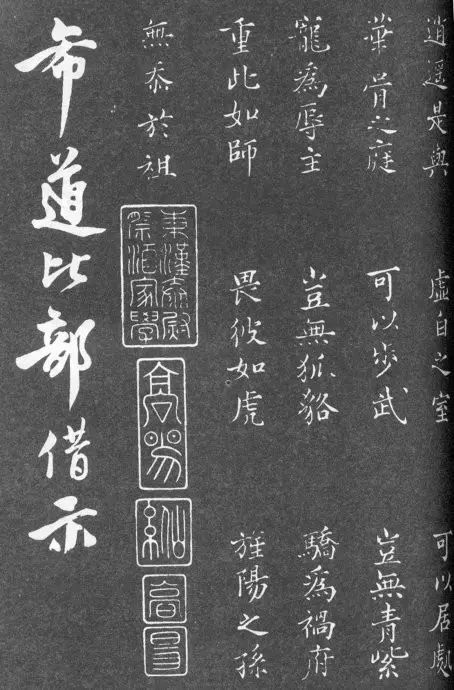 逍遥是與 虛白之室 可以居處
華胥之庭 可以步武 豈無青紫
寵為辱主 豈無狐貉 驕為禍府
重此如師 畏彼如虎 旌陽之孫
無忝於祖
東漢太尉
祭酒家學
高昜
希道比部借示